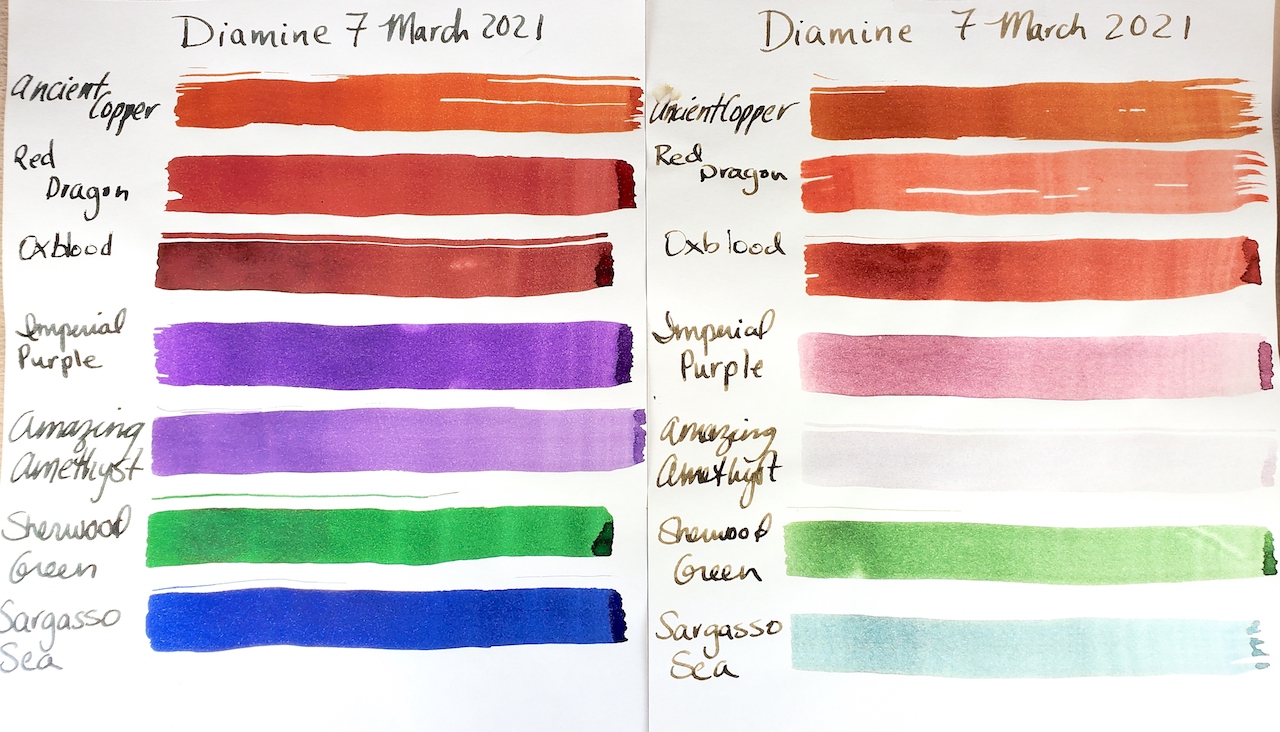 Diamine 7 March 2021
Ancient
Copper
Red
Dragon
Oxblood
Imperial
Purple
Amazing
Amethyst
Sherwood
Green
Sargasso
Sea
Diamine 7 March 2021
Ancient Copper
Red
Dragon
Oxblood
Imperial
Purple
Amazing
Amethyst
Sherwood
Green
Sargasso
Sea